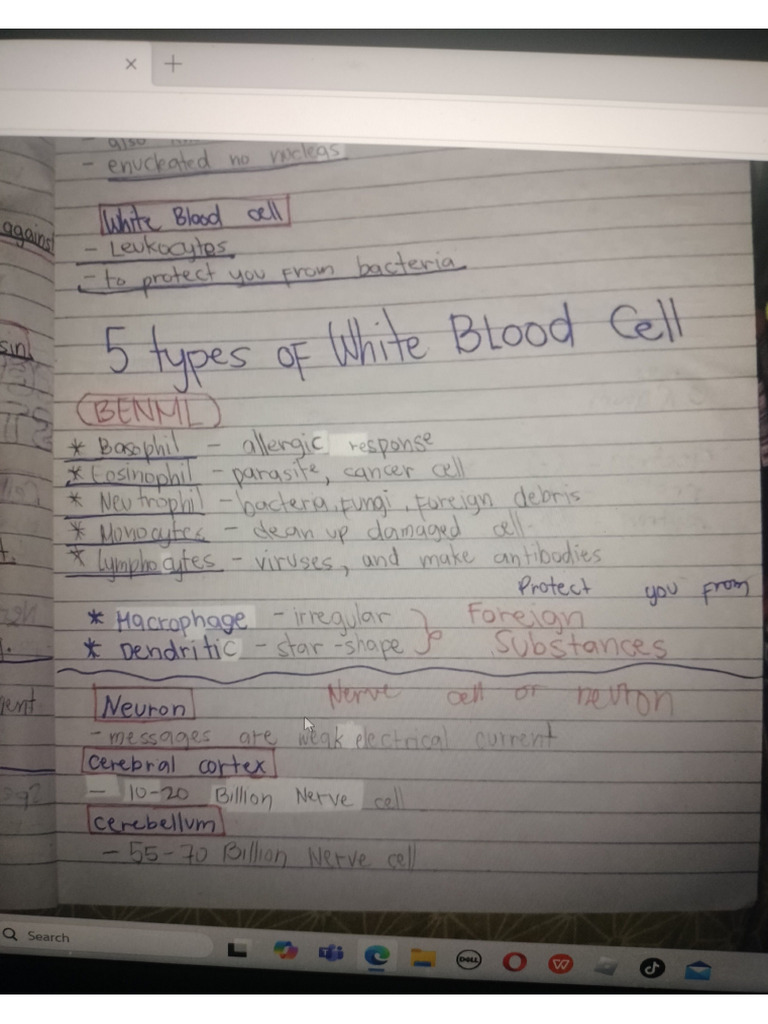 × +
- also
- enucleated no nucleas
White Blood cell
against
- Leukocytes
- to protect you from bacteria
5 types of White Blood Cell
(BENML)
* Basophil - allergic response
* Eosinophil - parasite, cancer cell
* Neutrophil - bacteria, fungi, foreign debris
* Monocytes - clean up damaged cell.
* Lymphocytes - viruses, and make antibodies
Protect you from
* Macrophage - irregular } Foreign
* Dendritic - star-shape Substances
Neuron Nerve cell or neuron
- messages are weak electrical current
cerebral cortex
- 10-20 Billion Nerve cell
cerebellum
- 55-70 Billion Nerve cell
Search
DELL